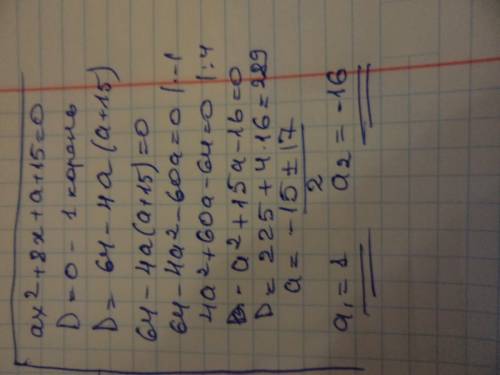 ax²+8x+a+15=0
D=0 - 1 корень
D= 64-4a(a+15)
64-4a(a+15)=0
64-4a²-60a=0 |·-1
4a²+60a-64=0 |:4
a²+15a-16=0
D=225+4·16=289
a= -15±17 / 2
a₁=1 a₂=-16